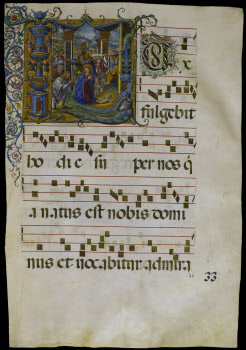 LU
x
fulgebit
ho di e su per nos q̄
a natus est nobis domi
nus et uocabitur admira
33